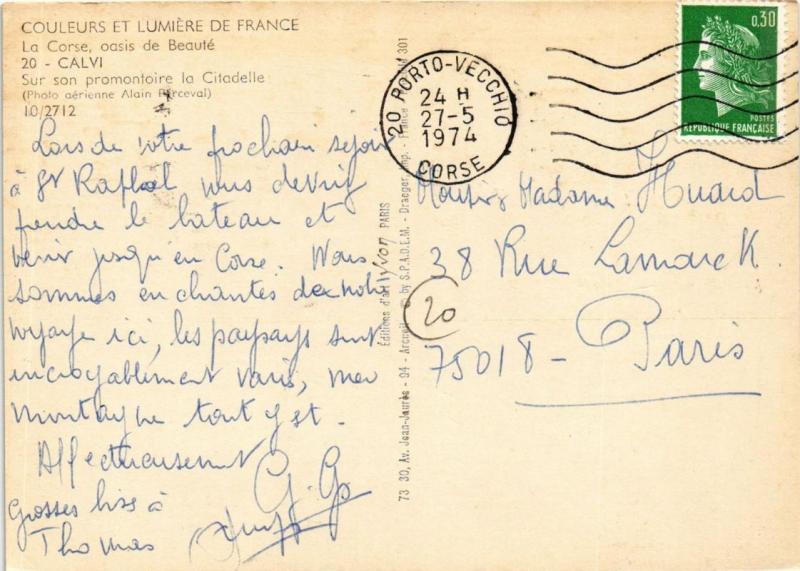 COULEURS ET LUMIÈRE DE FRANCE
La Corse, oasis de Beauté
20 - CALVI
Sur son promontoire la Citadelle
(Photo aérienne Alain Perceval)
10/2712
Lors de votre prochain séjour
à St Raphael vous devriez
prendre le bateau et
venir jusqu'en Corse. Nous
sommes enchantés de notre
voyage ici, les paysages sont
incroyablement variés, mer
montagne tout y est.
Affectueusement
Grosses bises à
Thomas
G. G
73 30, Av. Jean-Jaurès - 94 - Arcueil - © by S.P.A.D.E.M. - Draeger, Imp. - France 301
Éditions d'art yvon PARIS
20 PORTO-VECCHIO
24 H
27-5
1974
CORSE
0,30
POSTES
RÉPUBLIQUE FRANÇAISE
Madame Huard
38 Rue Lamarck.
20
75018 - Paris